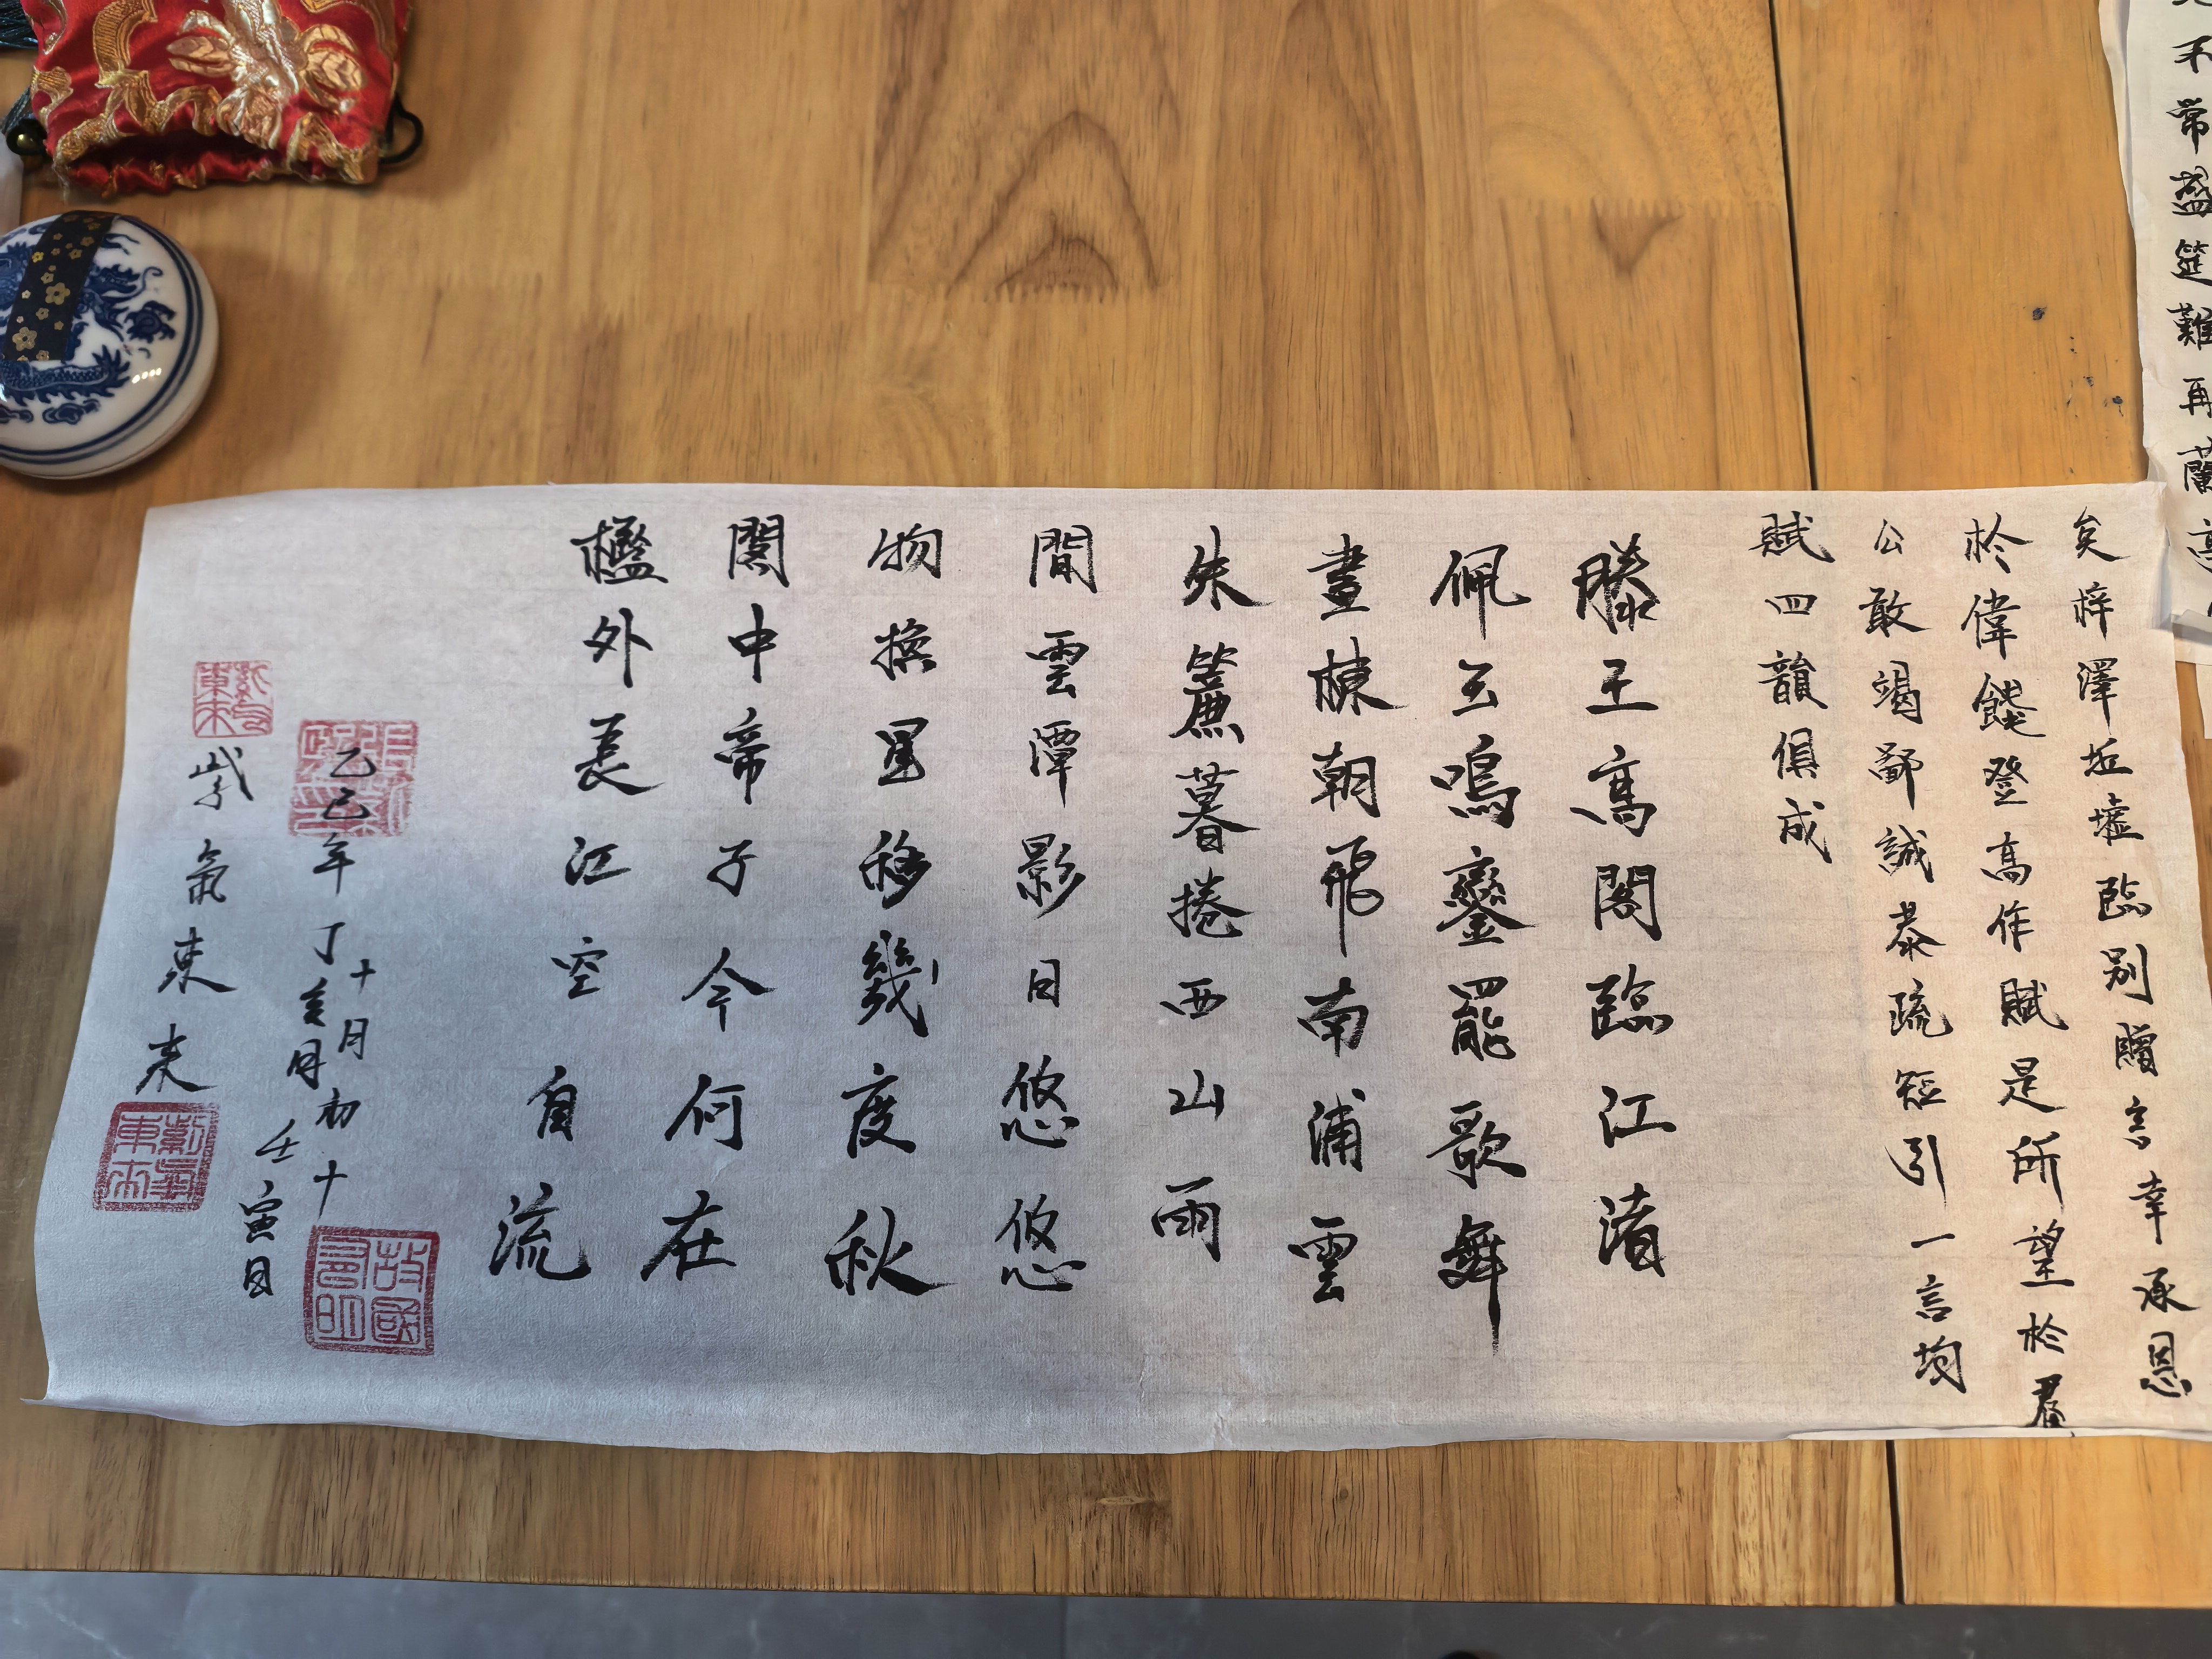 不常盛筵難再蘭亭
矣梓澤丘墟臨別贈言幸承恩
於偉餞登高作賦是所望於羣
公敢竭鄙誠恭疏短引一言均
賦四韻俱成
滕王高閣臨江渚
佩玉鳴鑾罷歌舞
畫棟朝飛南浦雲
朱簾暮捲西山雨
閒雲潭影日悠悠
物換星移幾度秋
閣中帝子今何在
檻外長江空自流
乙巳年丁亥月壬寅日
十月初十
紫氣東來
紫氣東來
紫氣東來
故國